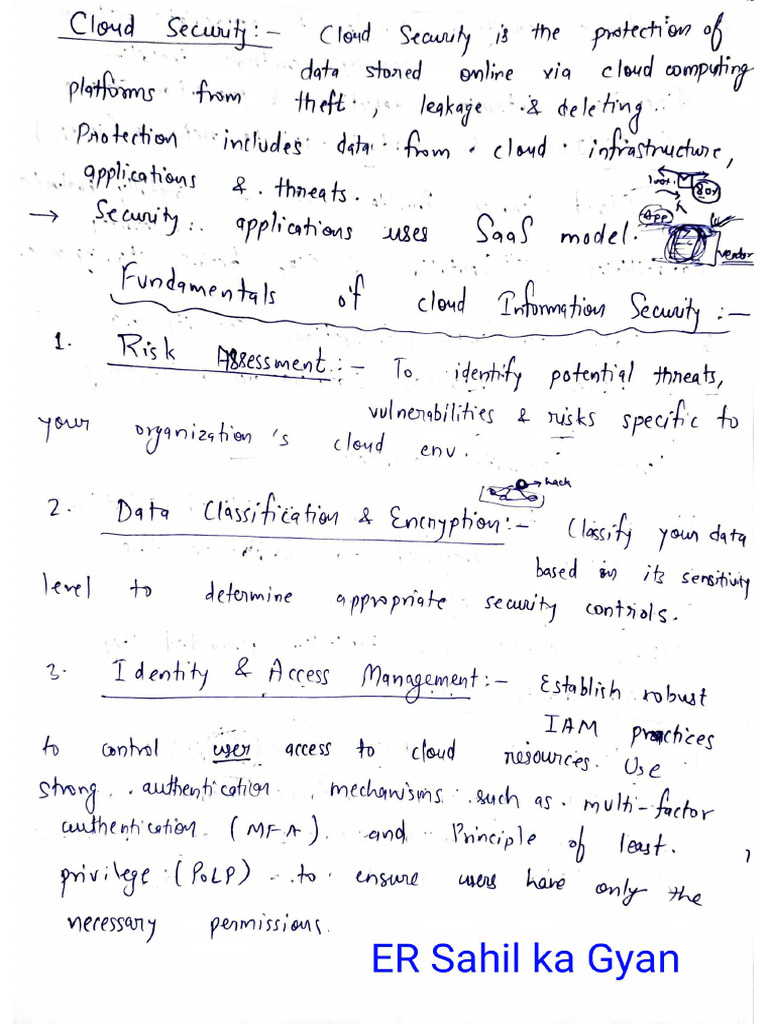 Cloud Security :- Cloud Security is the protection of
data stored online via cloud computing
platforms from theft, leakage & deleting.
Protection includes data from cloud infrastructure,
applications & threats.
→ Security applications uses SaaS model.
App
vendor
Fundamentals of cloud Information Security :-
1. Risk Assessment :- To identify potential threats,
vulnerabilities & risks specific to
your organization's cloud env.
hack
2. Data Classification & Encryption :- Classify your data
based on its sensitivity
level to determine appropriate security controls.
3. Identity & Access Management :- Establish robust
IAM practices
to control user access to cloud resources. Use
strong authentication mechanisms such as multi-factor
authentication (MFA) and Principle of least
privilege (PoLP) to ensure users have only the
necessary permissions.
ER Sahil ka Gyan